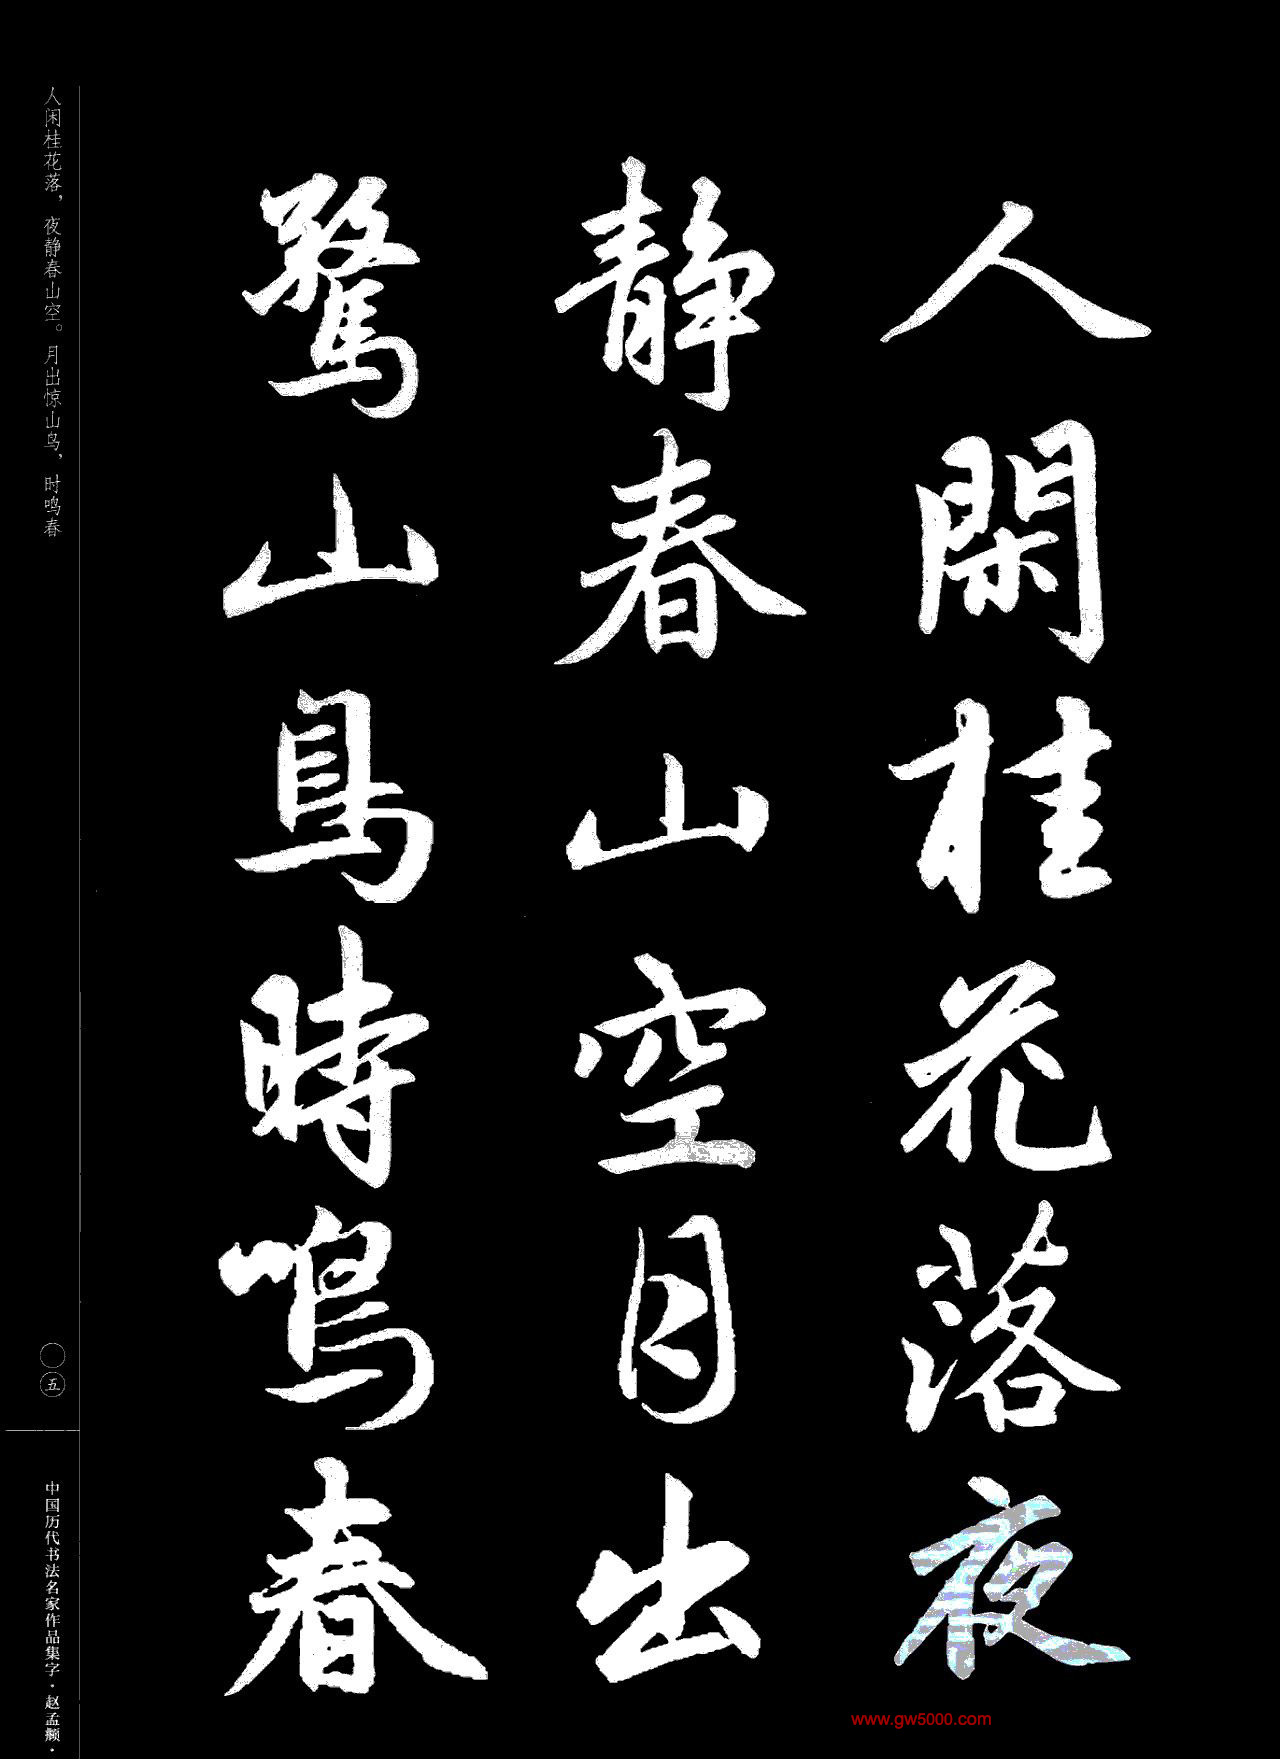 人閑桂花落夜
静春山空月出
驚山鳥時鳴春
人闲桂花落，夜静春山空。月出惊山鸟，时鸣春
〇五
中国历代书法名家作品集字·赵孟頫·
www.gw5000.com